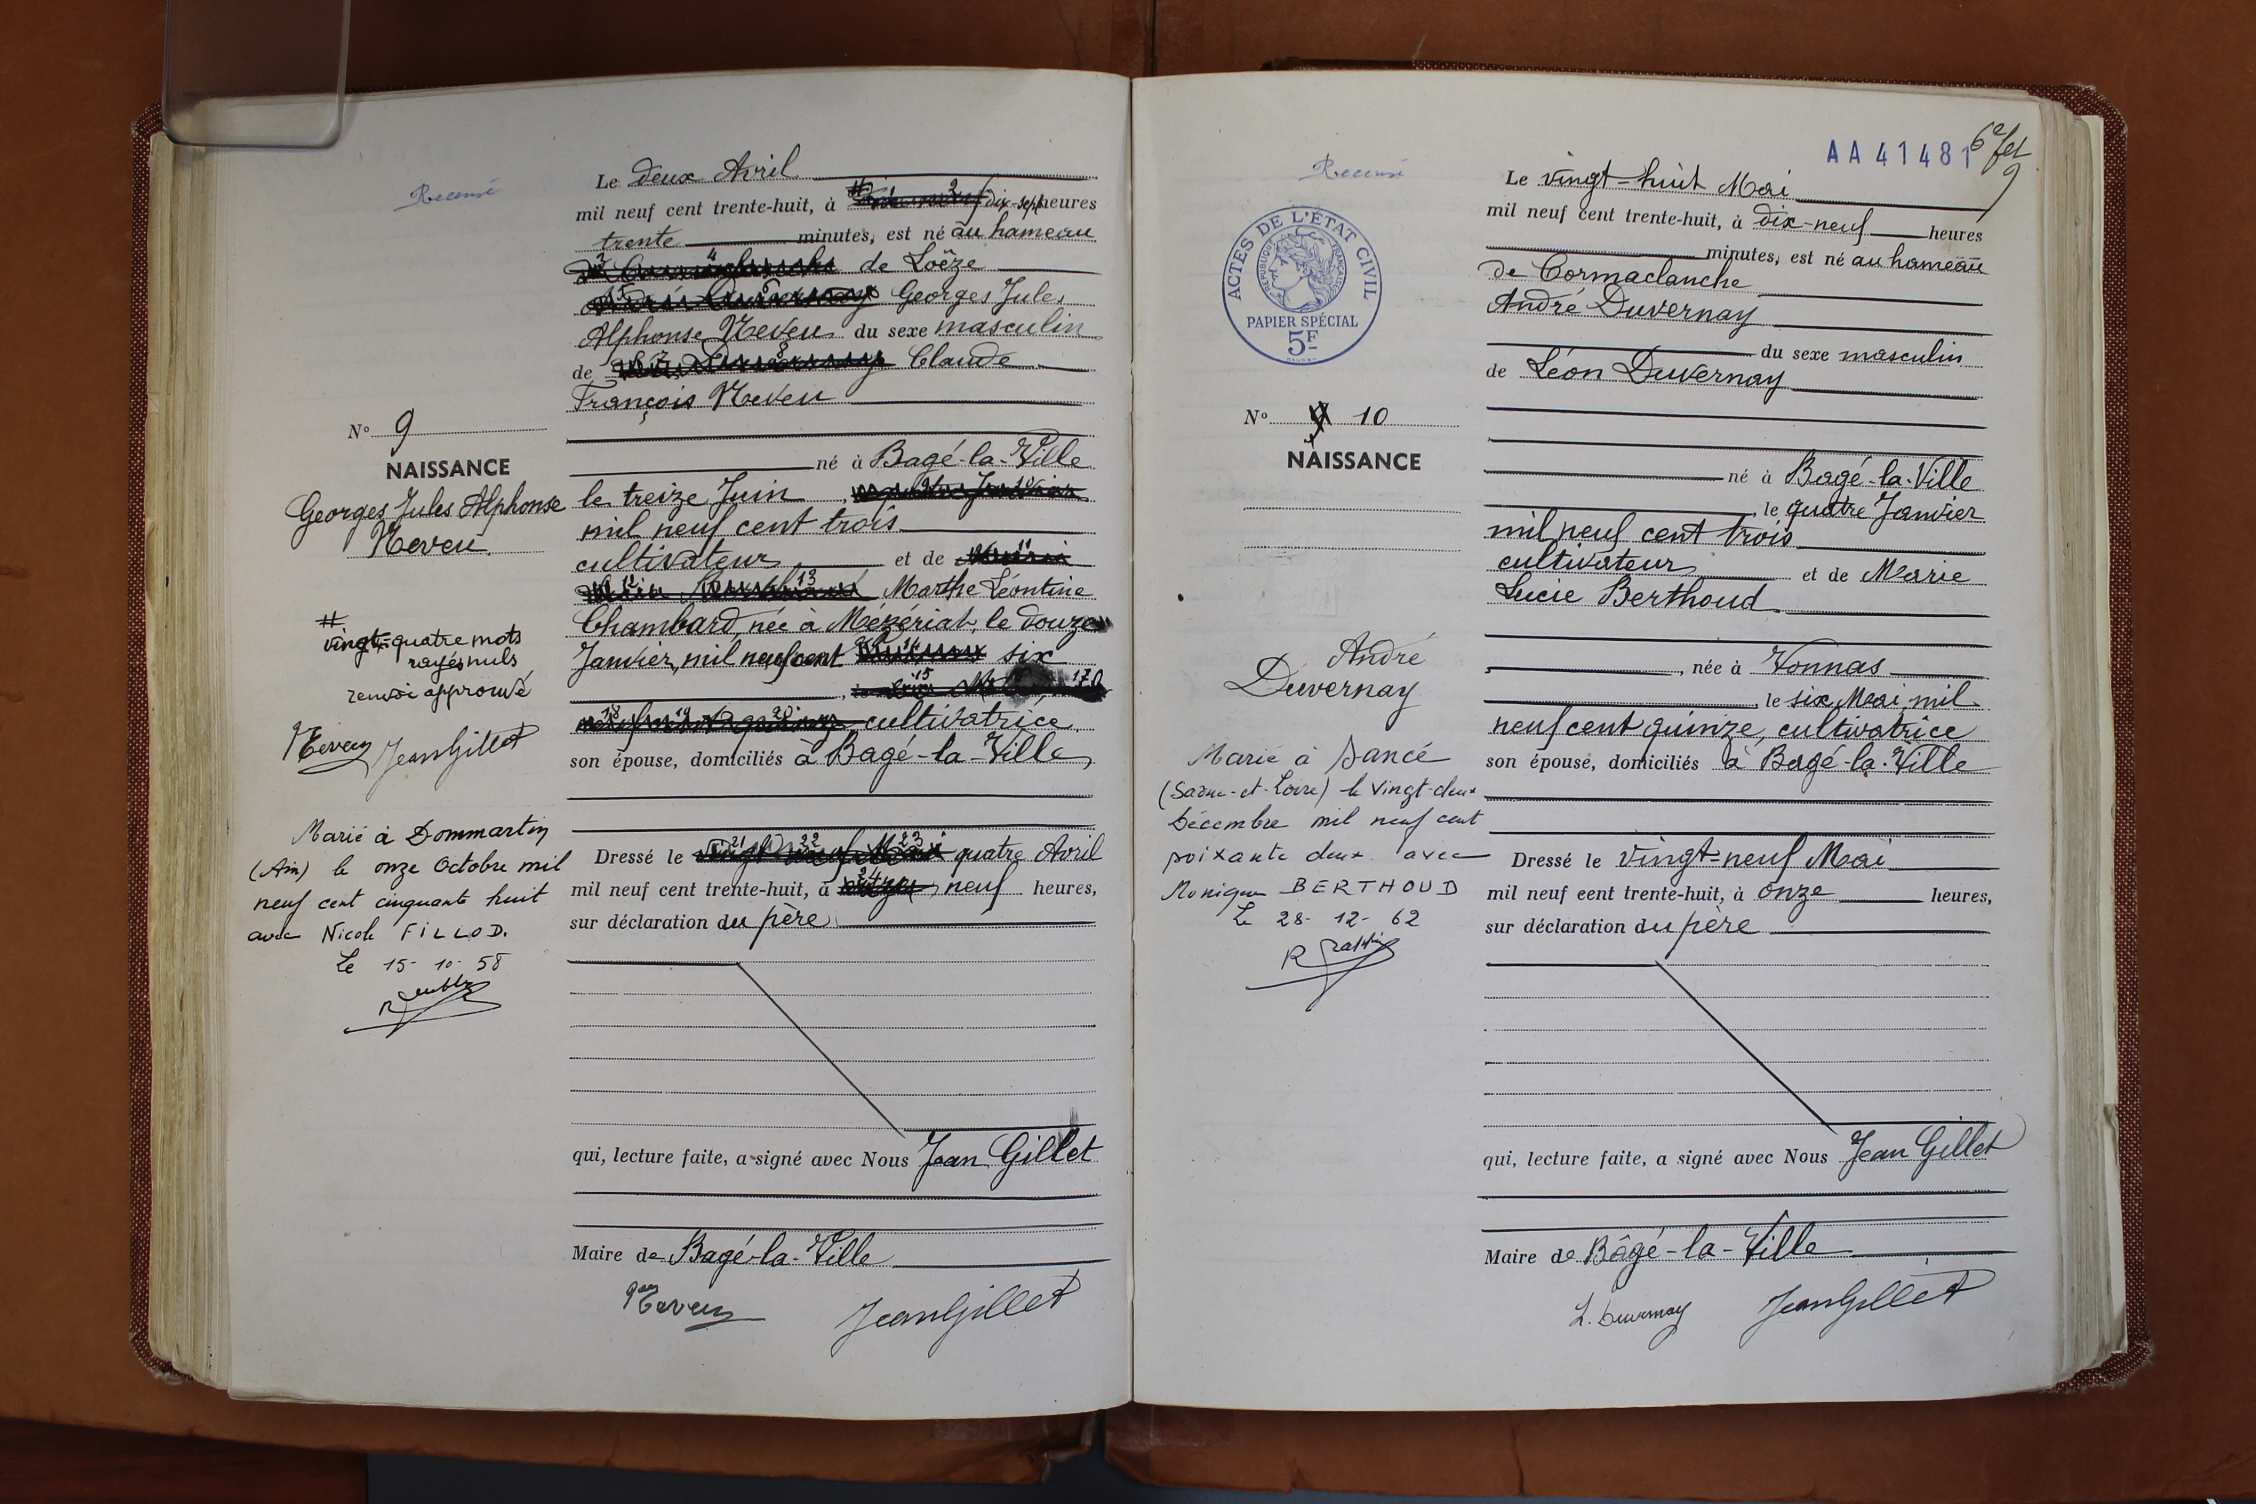 Recensé
Le deux Avril
mil neuf cent trente-huit, à dix-sept heures
trente minutes, est né au hameau
de Loëze
Georges Jules
Alphonse Neveu du sexe masculin
de Claude
François Neveu
N° 9
NAISSANCE
Georges Jules Alphonse
Neveu
né à Bagé-la-Ville
le treize Juin
mil neuf cent trois
cultivateur et de
Marthe Léontine
Chambard, née à Mézériat, le douze
Janvier, mil neuf cent six
cultivatrice
son épouse, domiciliés à Bagé-la-Ville,
#
vingt-quatre mots
rayés nuls
renvoi approuvé
Neveu JeanGillet
Dressé le quatre Avril
mil neuf cent trente-huit, à neuf heures,
sur déclaration du père
Marié à Dommartin
(Ain) le onze Octobre mil
neuf cent cinquante huit
avec Nicole FILLOD.
Le 15-10-58
qui, lecture faite, a signé avec Nous Jean Gillet
Maire de Bagé-la-Ville
Neveu JeanGillet
AA 41481
Recensé
ACTES DE L'ÉTAT CIVIL
RÉPUBLIQUE FRANÇAISE
PAPIER SPÉCIAL
5F
Le vingt-huit Mai
mil neuf cent trente-huit, à dix-neuf heures
minutes, est né au hameau
de Cormaclanche
André Duvernay
du sexe masculin
de Léon Duvernay
N° 10
NAISSANCE
né à Bagé-la-Ville
, le quatre Janvier
mil neuf cent trois
cultivateur et de Marie
Lucie Berthoud
, née à Vonnas
, le six Mai, mil
neuf cent quinze, cultivatrice
son épouse, domiciliés à Bagé-la-Ville
André
Duvernay
Marié à Sancé
(Saône-et-Loire) le vingt-deux
Décembre mil neuf cent
soixante deux avec
Monique BERTHOUD
Le 28-12-62
Dressé le vingt-neuf Mai
mil neuf cent trente-huit, à onze heures,
sur déclaration du père
qui, lecture faite, a signé avec Nous Jean Gillet
Maire de Bâgé-la-Ville
L. Duvernay JeanGillet